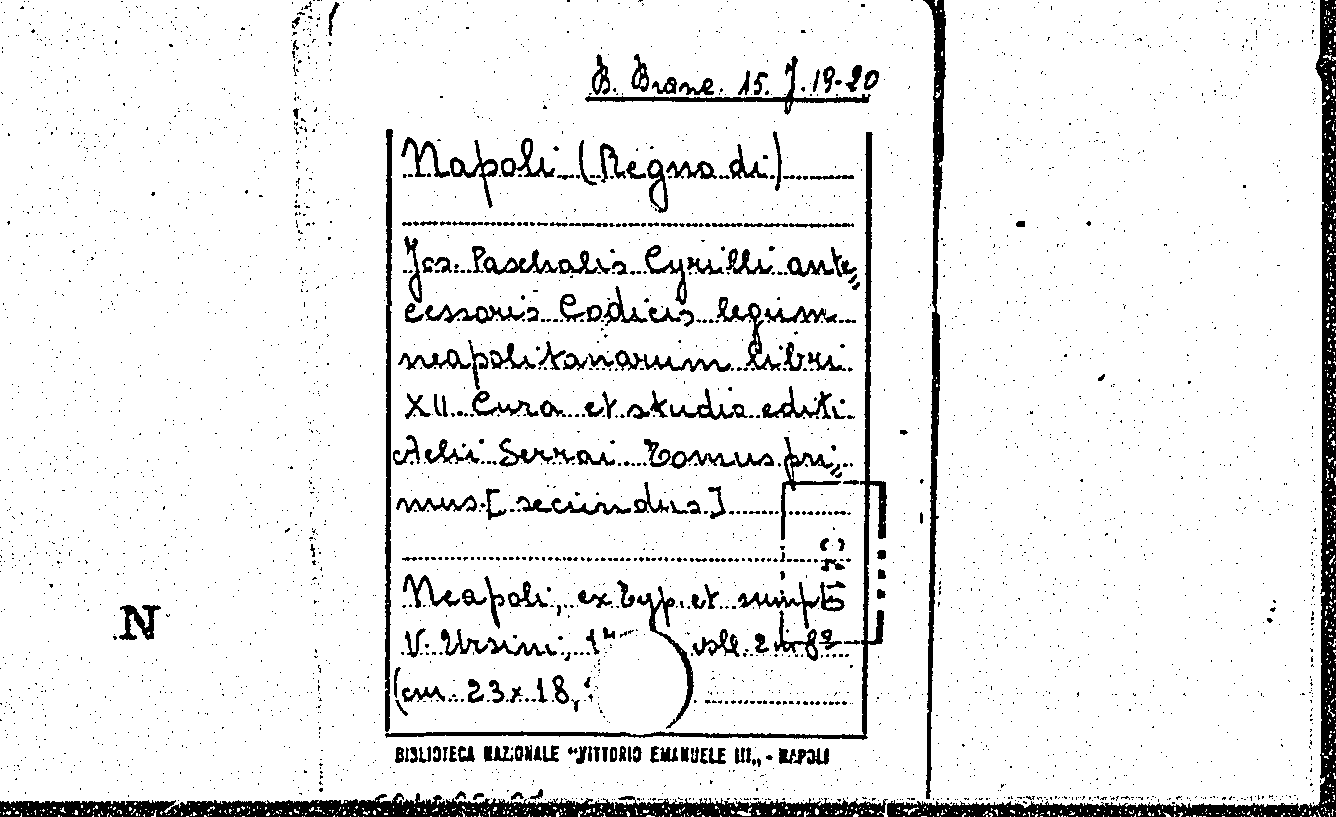 B. Branc. 15. J. 19-20
Napoli (Regno di)
Jos. Paschalis Cyrilli ante„
cessoris Codicis legum
neapolitanarum libri
XII. Cura et studio editi
Aelii Serrai Tomus pri„
mus. [secundus]
Neapoli, ex Typ. et sumpt.
V. Ursini, voll. 2 in 8º
(cm. 23x18,
N
BIBLIOTECA NAZIONALE "VITTORIO EMANUELE III„ - NAPOLI